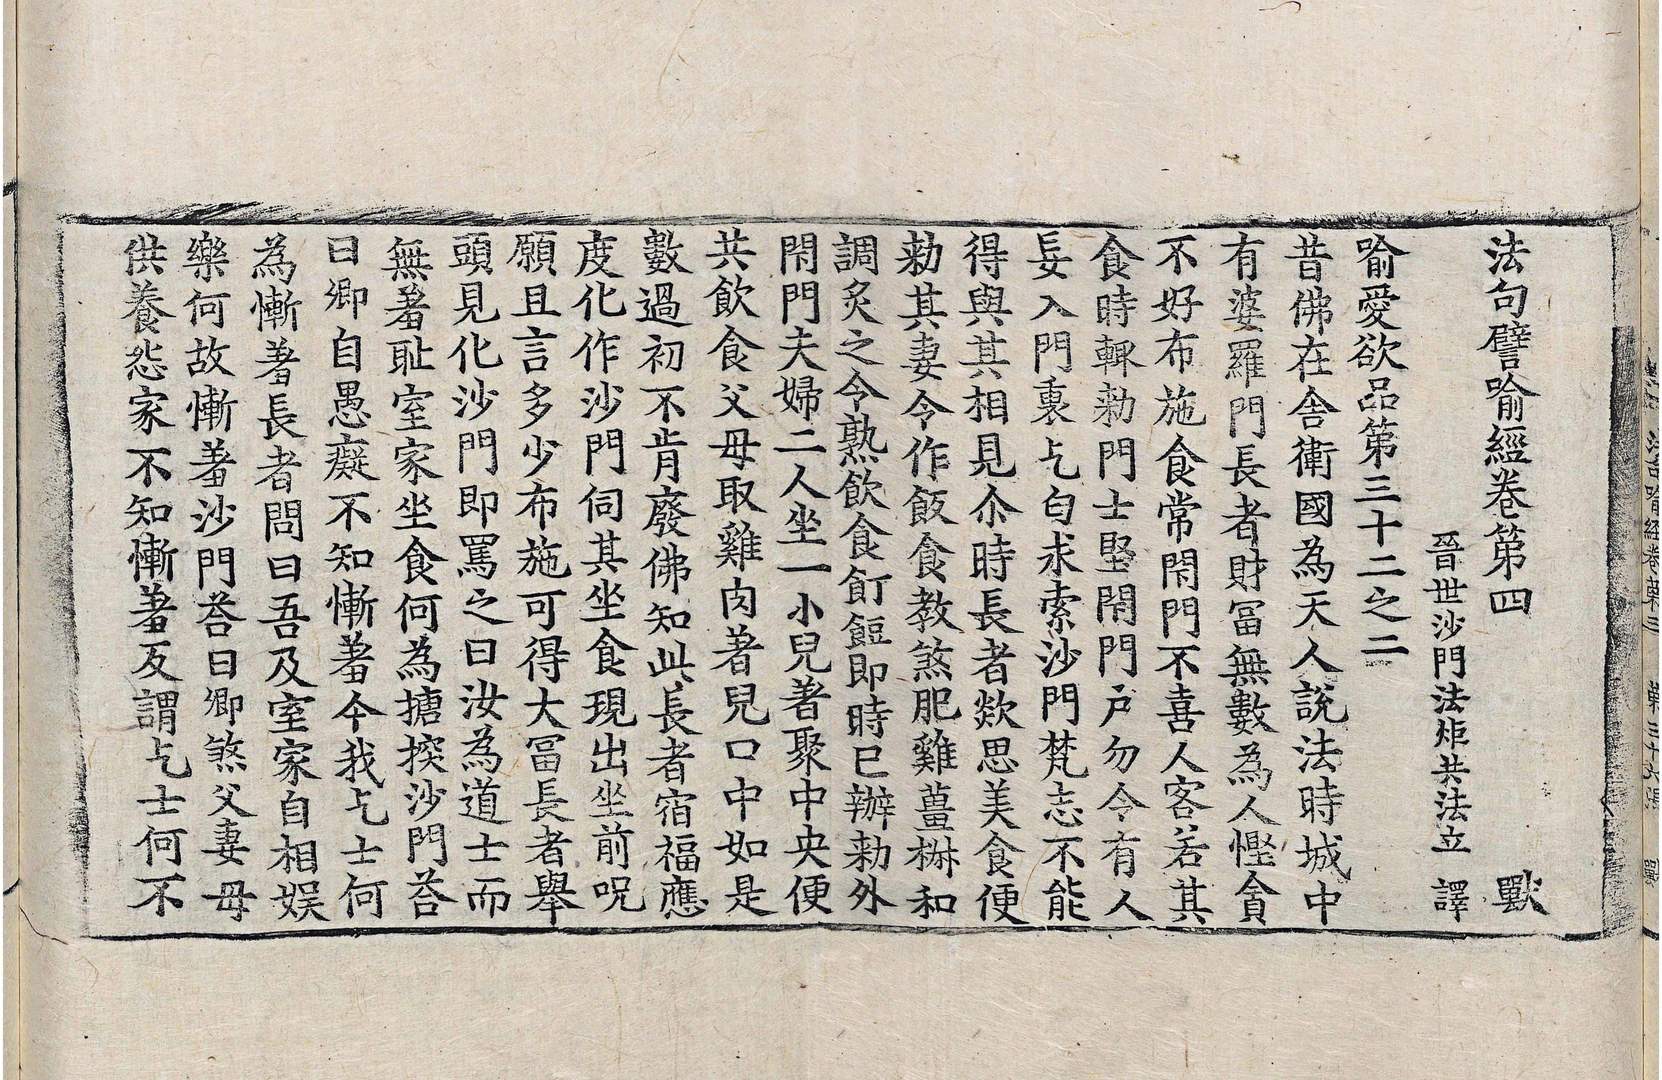 法句譬喻經卷第四 獸
晉世沙門法炬共法立 譯
喻愛欲品第三十二之二
昔佛在舍衛國為天人說法時城中
有婆羅門長者財冨無數為人慳貪
不好布施食常閇門不喜人客若其
食時輙勑門士堅閇門戶勿令有人
妄入門裏乞匃求索沙門梵志不能
得與其相見尒時長者欻思美食便
勑其妻令作飯食教煞肥雞薑椒和
調炙之令熟飲食飣餖即時已辦勑外
閇門夫婦二人坐一小兒著聚中央便
共飲食父母取雞肉著兒口中如是
數過初不肯廢佛知此長者宿福應
度化作沙門伺其坐食現出坐前呪
願且言多少布施可得大冨長者舉
頭見化沙門即罵之曰汝為道士而
無羞耻室家坐食何為搪揬沙門荅
曰卿自愚癡不知慚羞今我乞士何
為慚羞長者問曰吾及室家自相娱
樂何故慚羞沙門荅曰卿煞父妻母
供養怨家不知慚羞反謂乞士何不